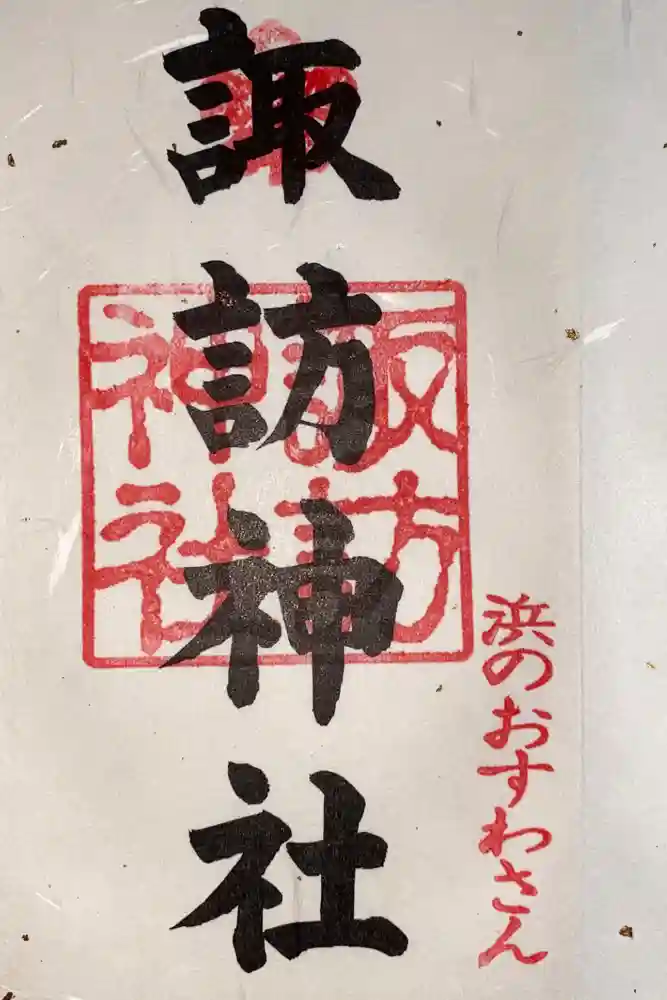 諏訪神社
諏訪
神社
浜のおすわさん